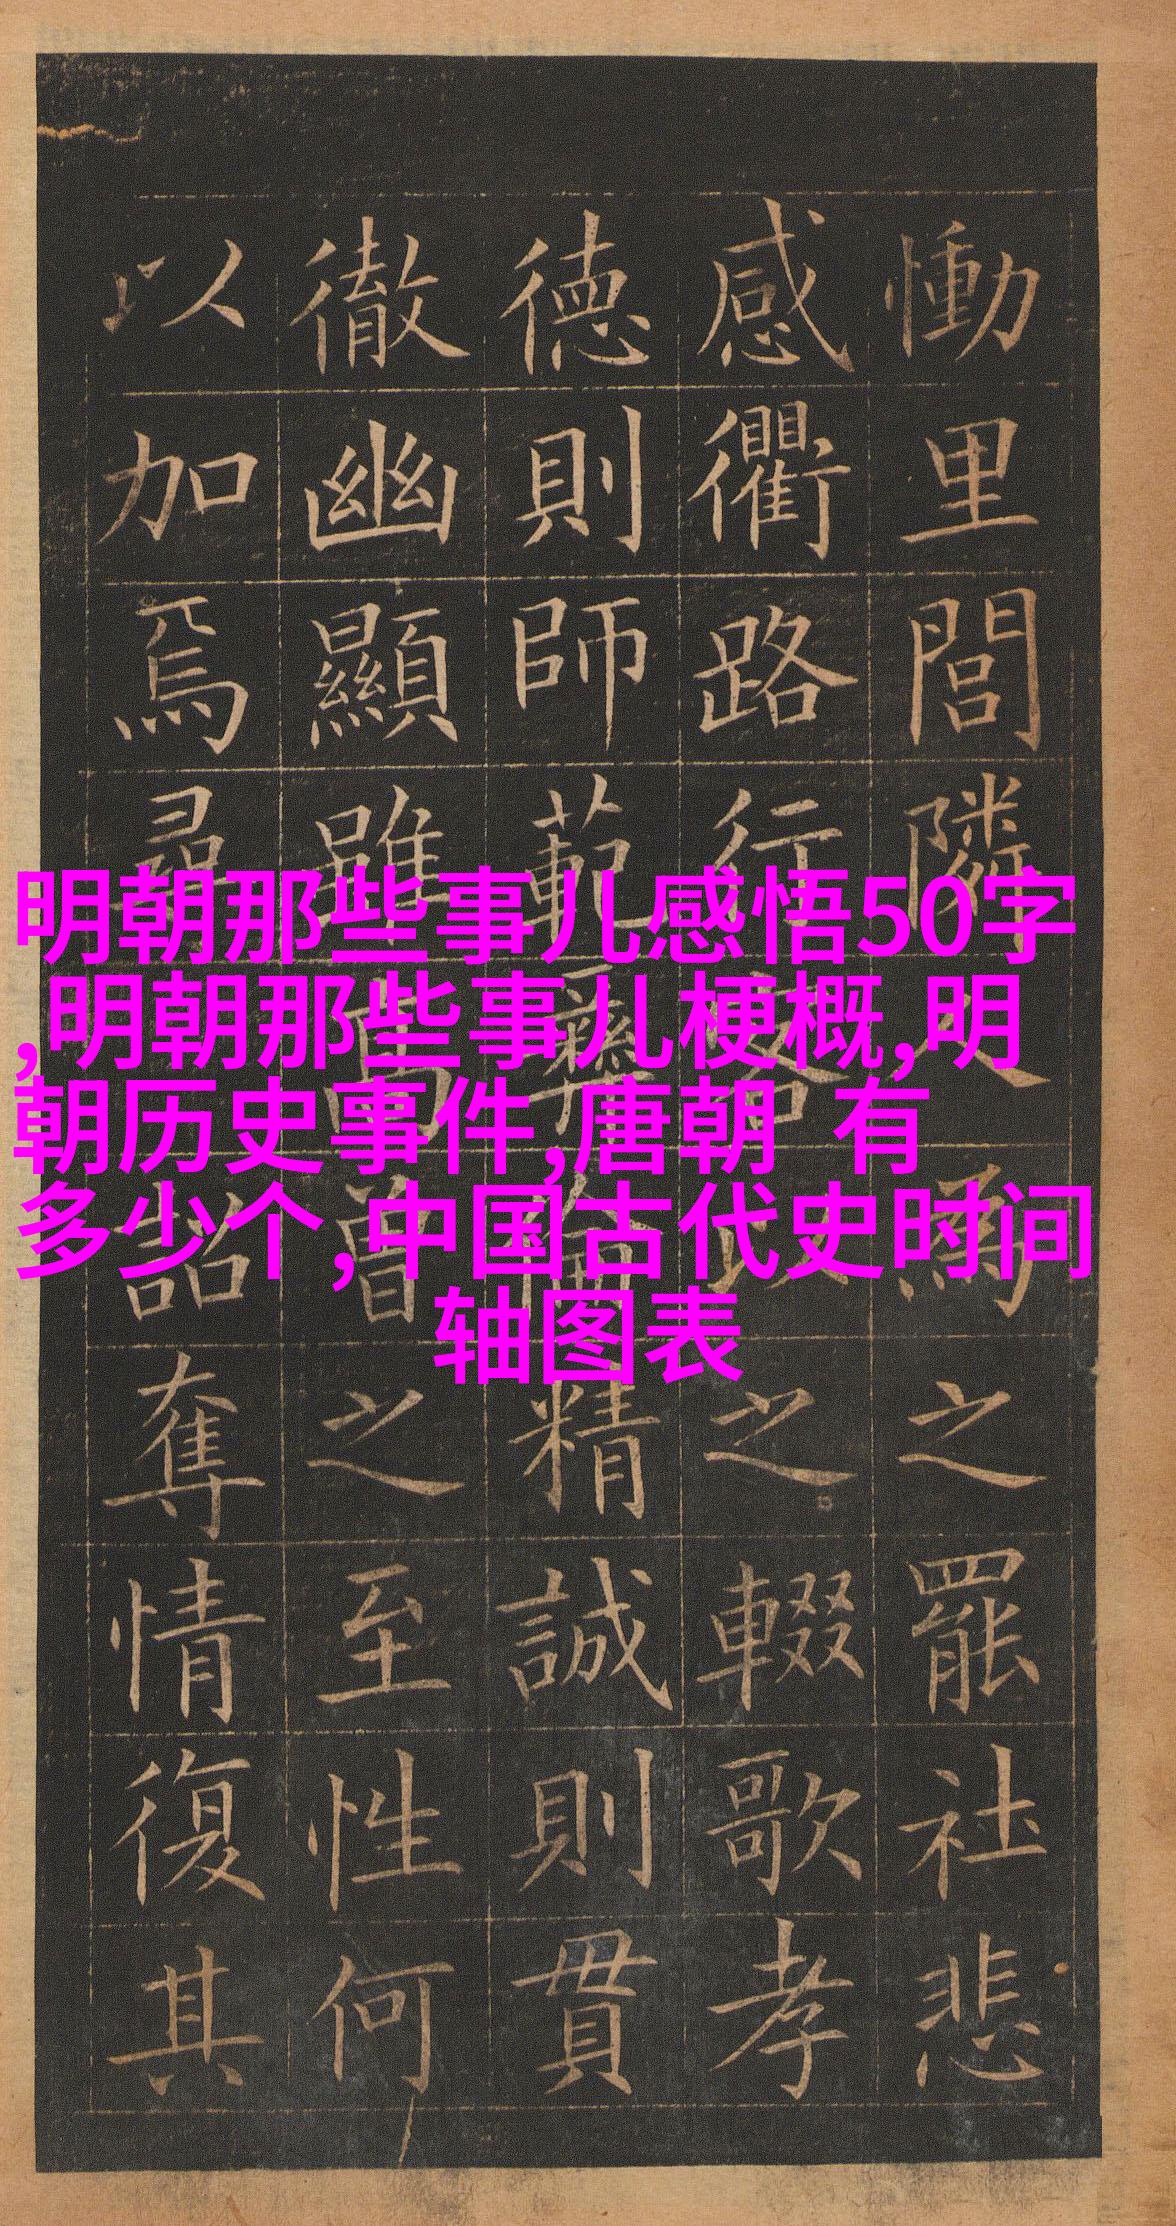 慟里閭隣人爲之罷社悲
感衢路行客以之輟歌孝
德則師範彝倫精誠則貫
徹幽顯雖高曾之至性何
以加焉尋詔奪情復其
明朝那些事儿感悟50字
,明朝那些事儿梗概,明
朝历史事件,唐朝 有
多少个,中国古代史时间
轴图表